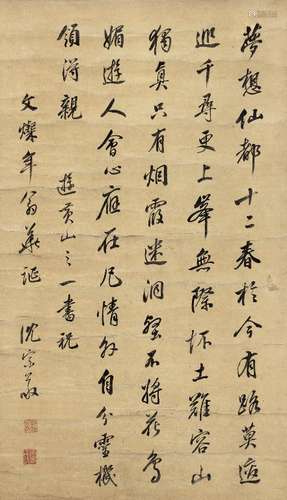 夢想仙都十二春於今有路莫逡
巡千尋更上峯無際坏土難容山
獨真只有烟霞迷洞壑不將花鳥
媚遊人會心應在凡情外自分靈機
領得親 遊黃山之一書祝
文燦年翁華誕 沈宗敬